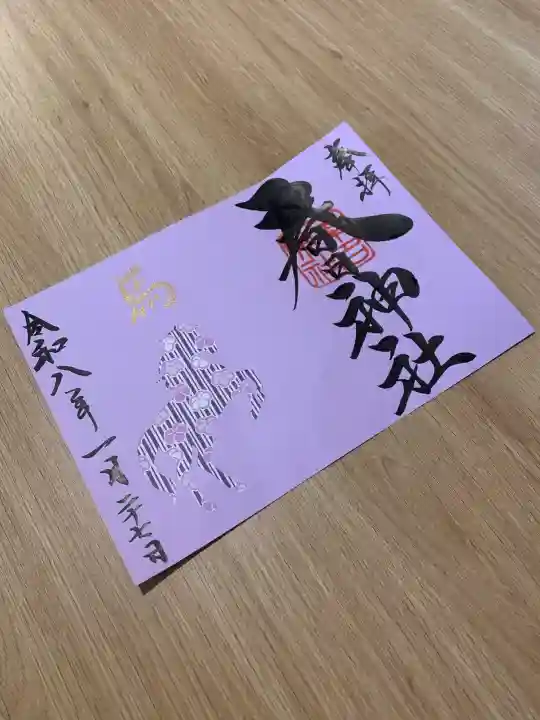 奉拝
春日神社
令和八年一月二十七日